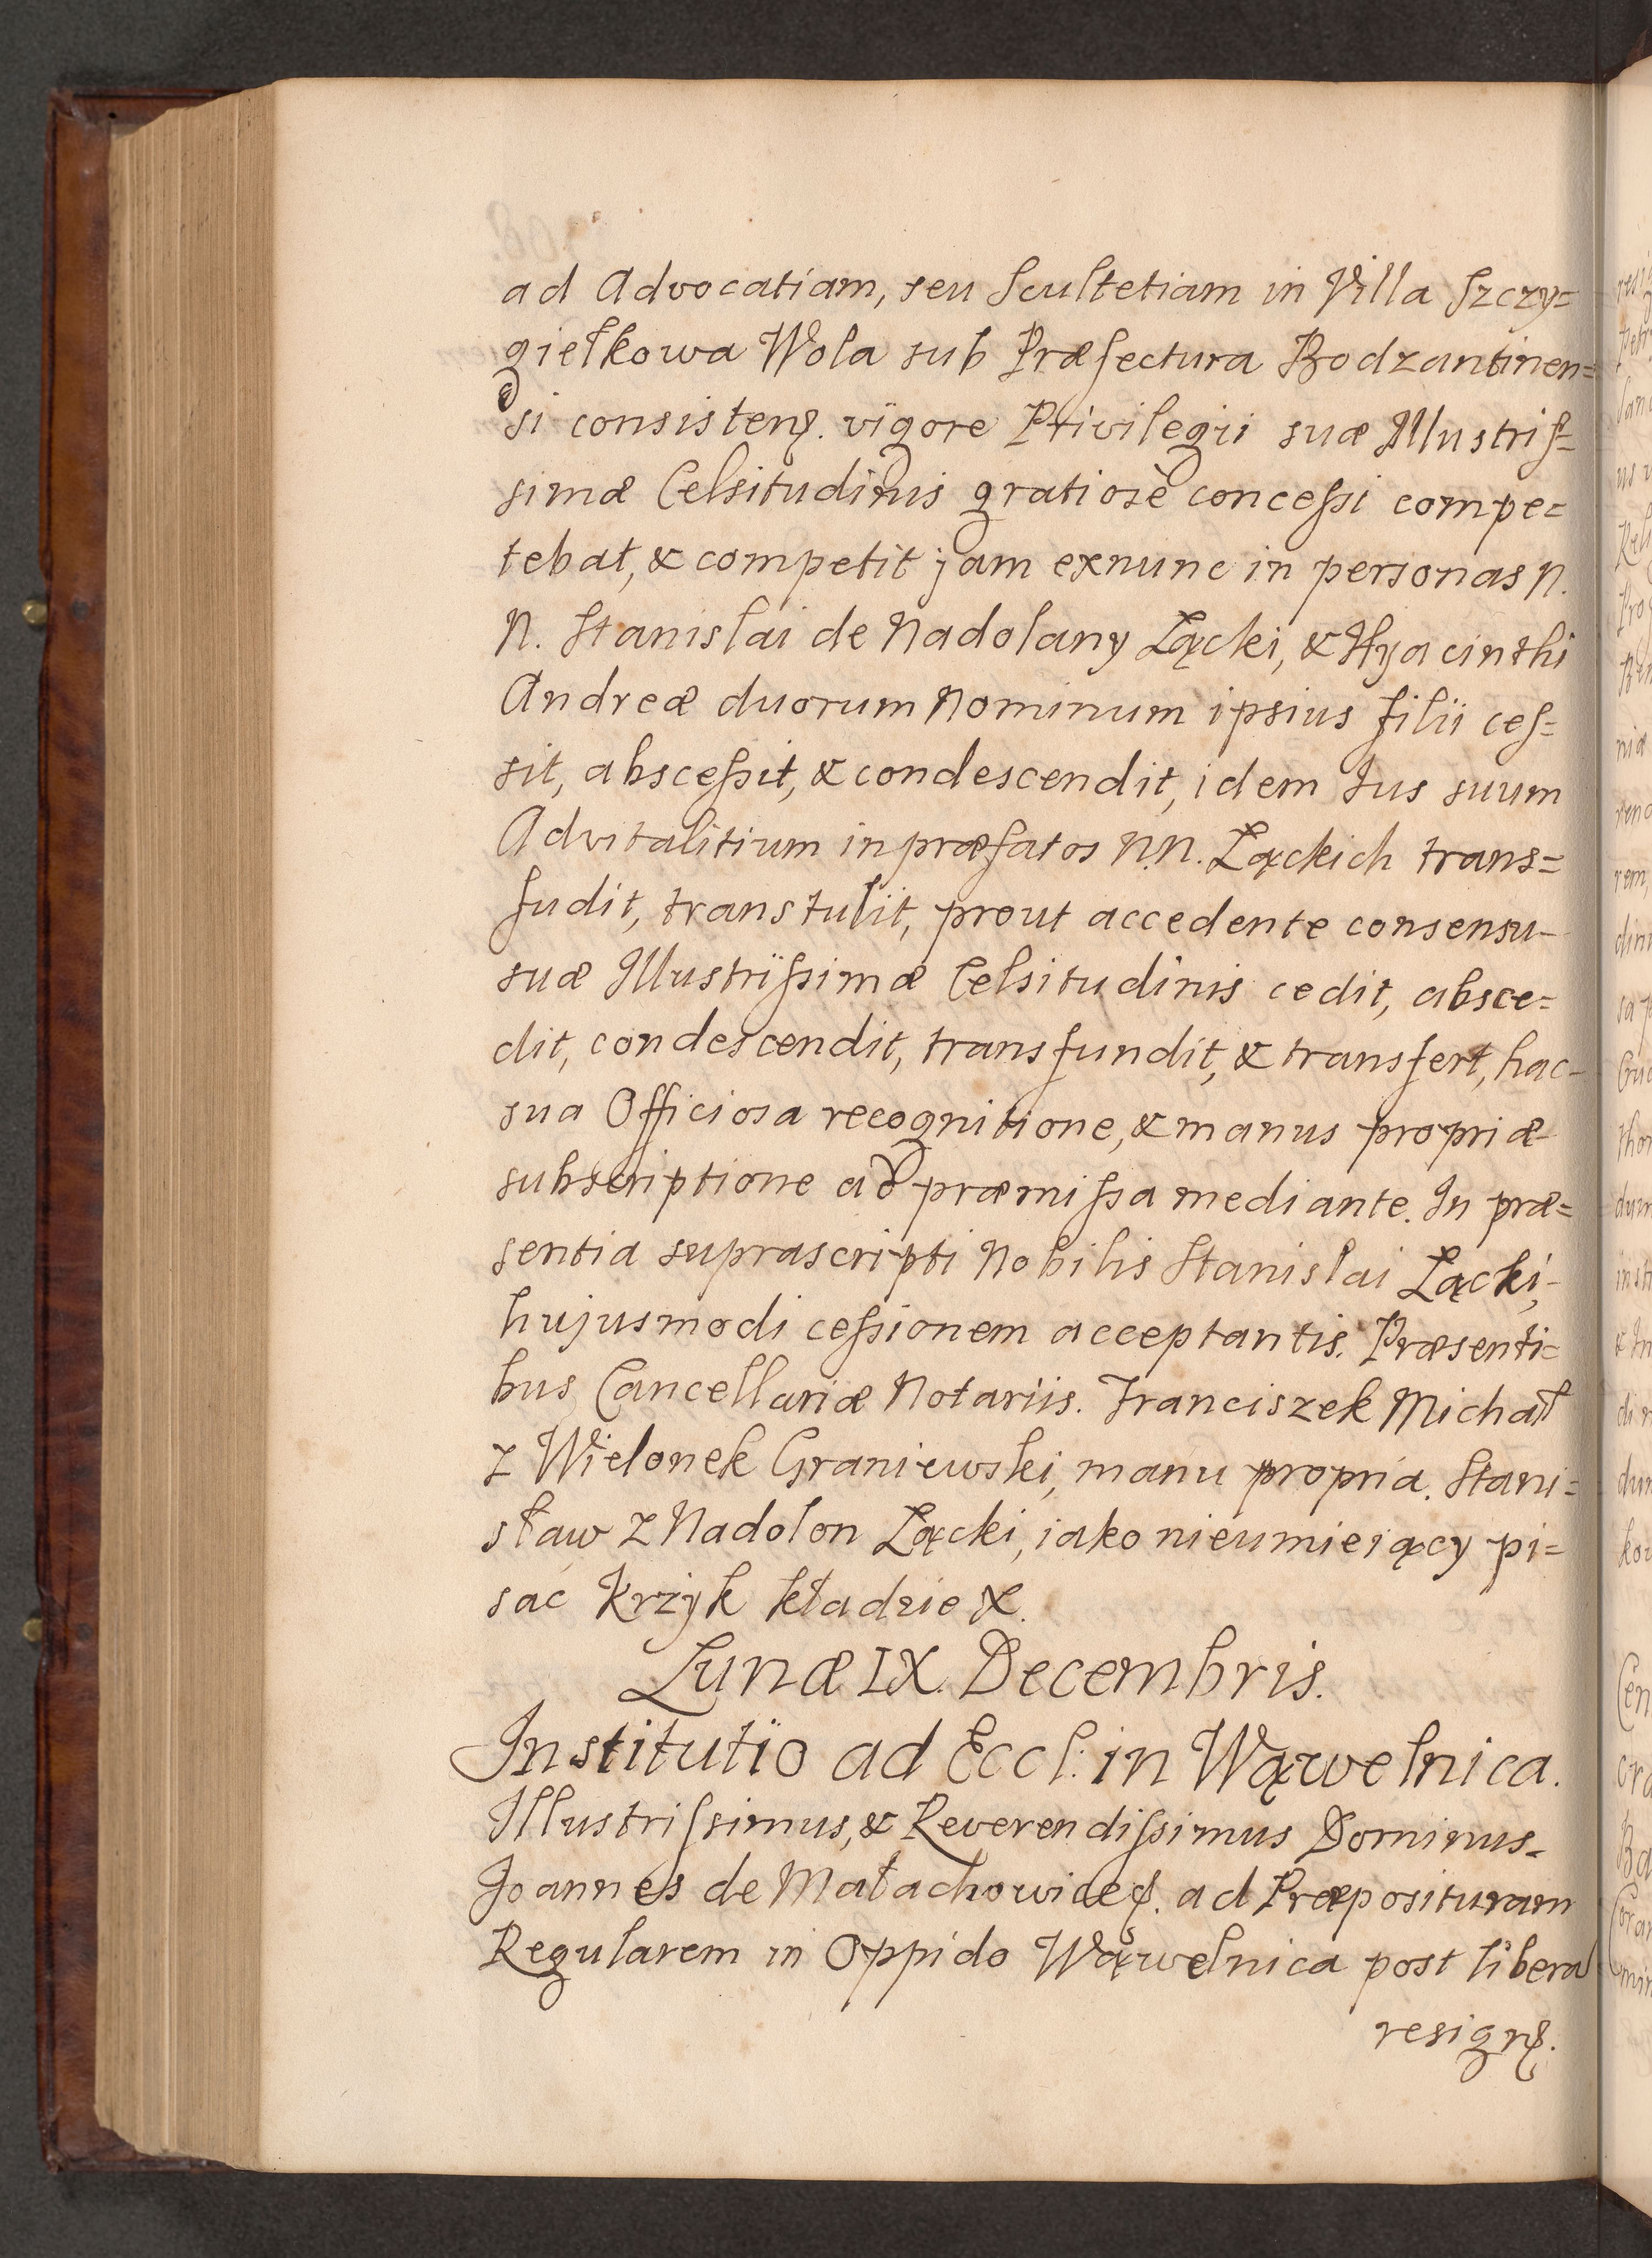 ad Advocatiam, seu Scultetiam in Villa Szczy=
giełkowa Wola sub Præfectura Bodzantinen=
si consisteñ. vigore Privilegii suæ Illustris=
simæ Celsitudinis gratiose concessi compe=
tebat, & competit jam exnunc in personas N.
N. Stanislai de Nadolany Łącki, & Hyacinthi
Andreæ duorum Nominum ipsius filii ces=
sit, abscessit, & condescendit, idem Jus suum
Advitalitium in præfatos N.N. Łąckich trans=
fudit, transtulit, prout accedente consensu
suæ Illustrissimæ Celsitudinis cedit, absce=
dit, condescendit, transfundit, & transfert, hac
sua Officiosa recognitione, & manus propriæ
subscriptione ad præmissa mediante. In præ=
sentia suprascripti Nobilis Stanislai Łącki,
hujusmodi cessionem acceptantis. Præsenti=
bus Cancellariæ Notariis. Franciszek Michał
z Wielonek Graniewski, manu propria. Stani=
sław z Nadolon Łącki, iako nieumieiący pi=
sać Krzyżyk kładzie X.
Lunæ IX. Decembris.
Institutio ad Eccl: in Wąwelnica.
Illustrissimus, & Reverendissimus Dominus
Joannes de Małachowiceş. ad Præposituram
Regularem in Oppido Wąwelnica post libera
resigñ.